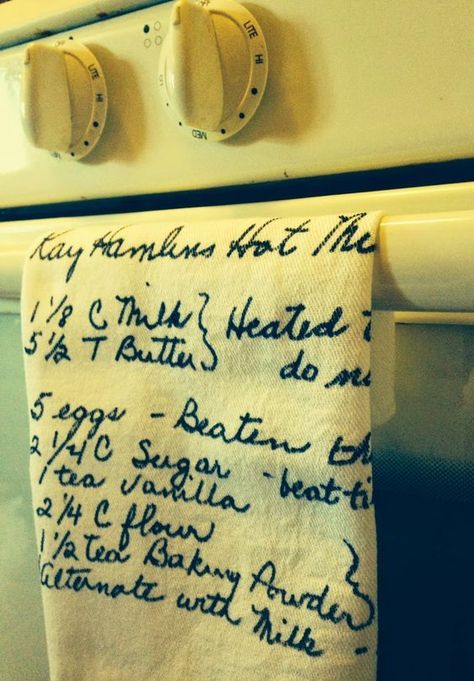 LITE HI
LITE HI
MED
Kay Hamlins Hot
1 1/8 C Milk } Heated
5 1/2 T Butter } do
5 eggs - Beaten
2 1/4 C Sugar - beat
1 tea Vanilla
2 1/4 C flour
1 1/2 tea Baking Powder }
Alternate with Milk -